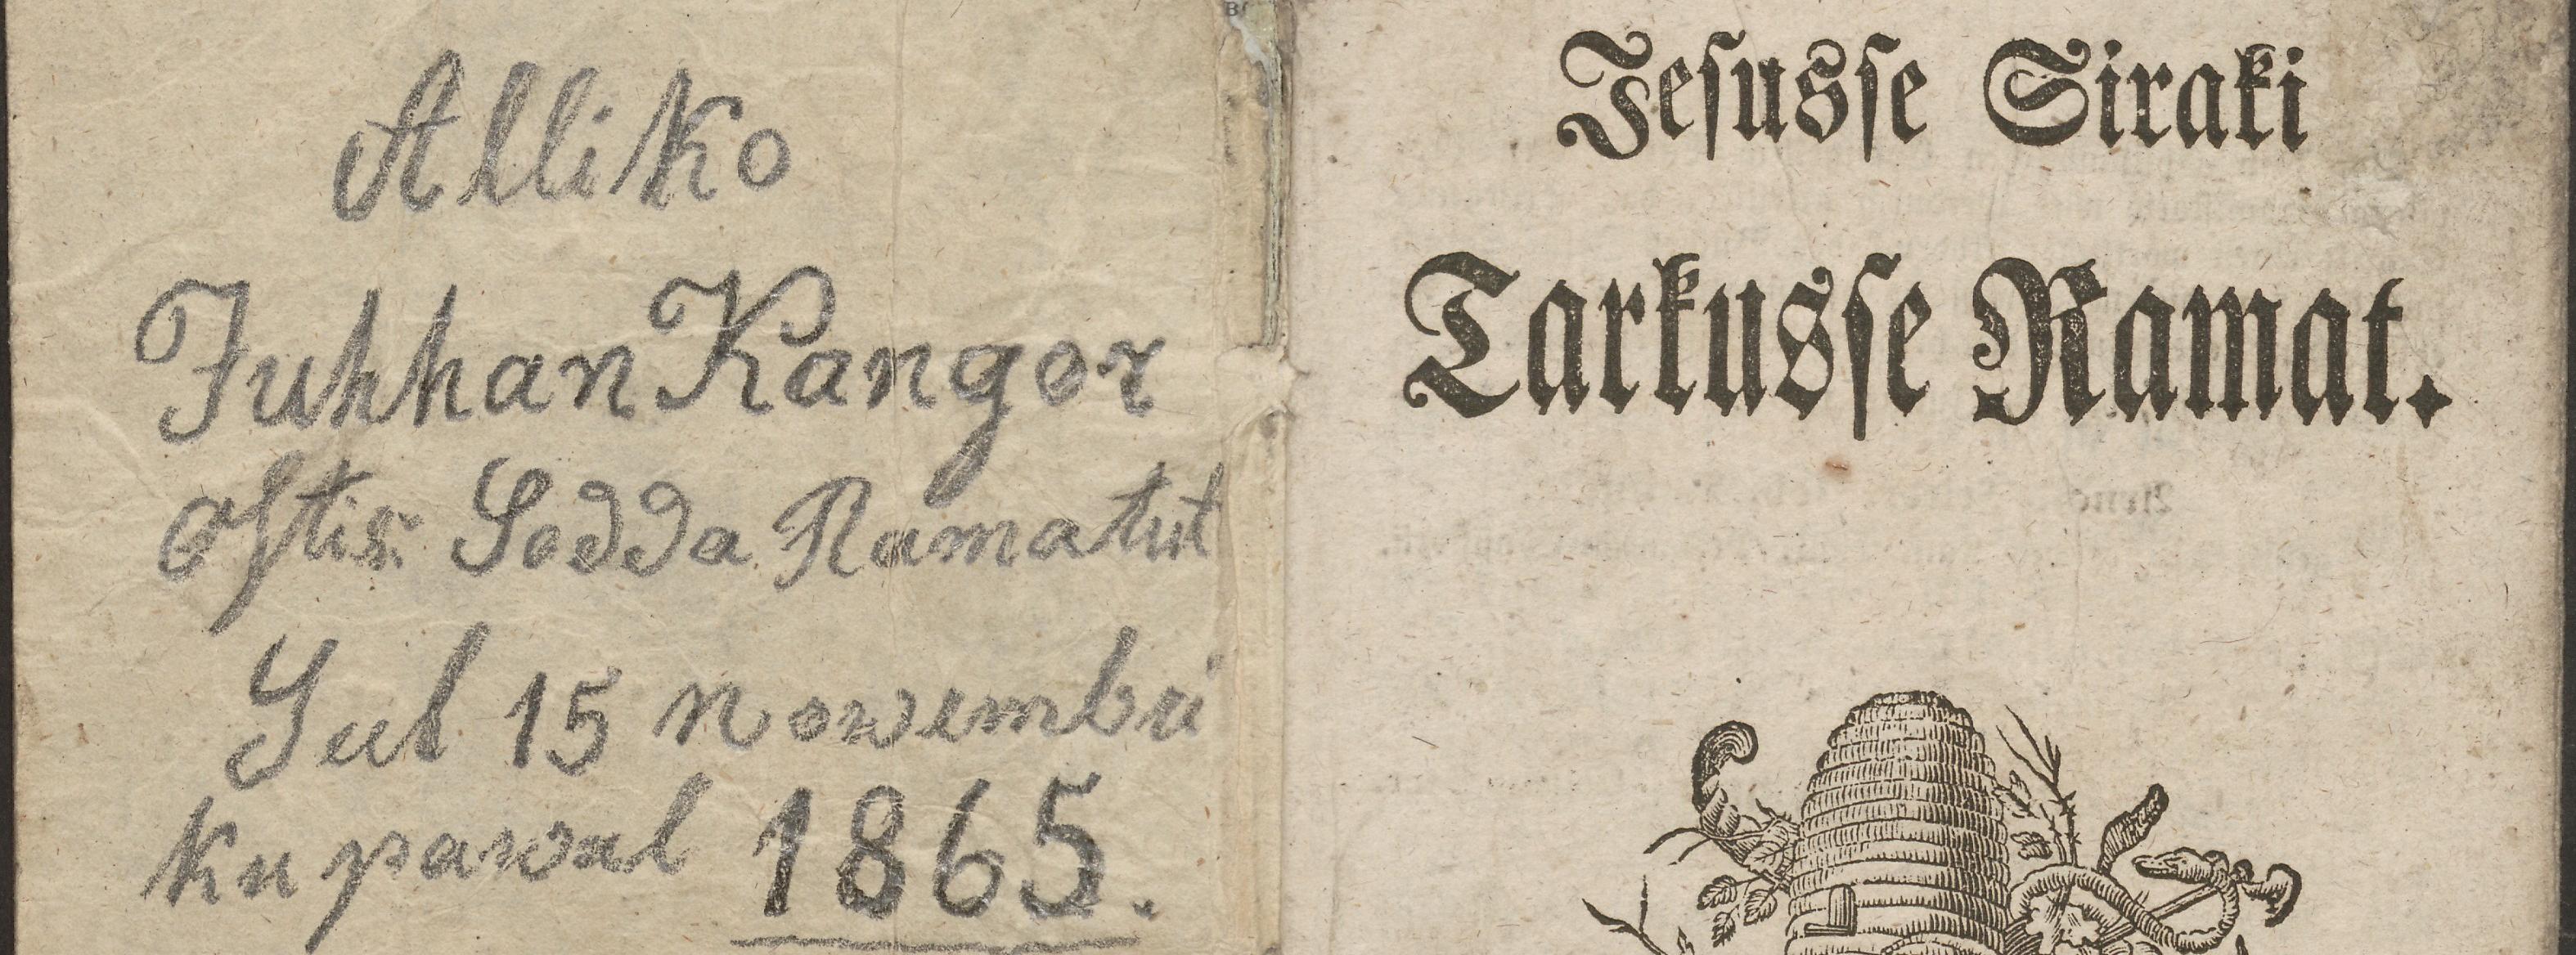 Alliko
Juhhan Kangor
Ostis: Sedda Ramatut
Sel 15 nowembri
ku pawal 1865.
Jesusse Siraki
Tarkusse Ramat.